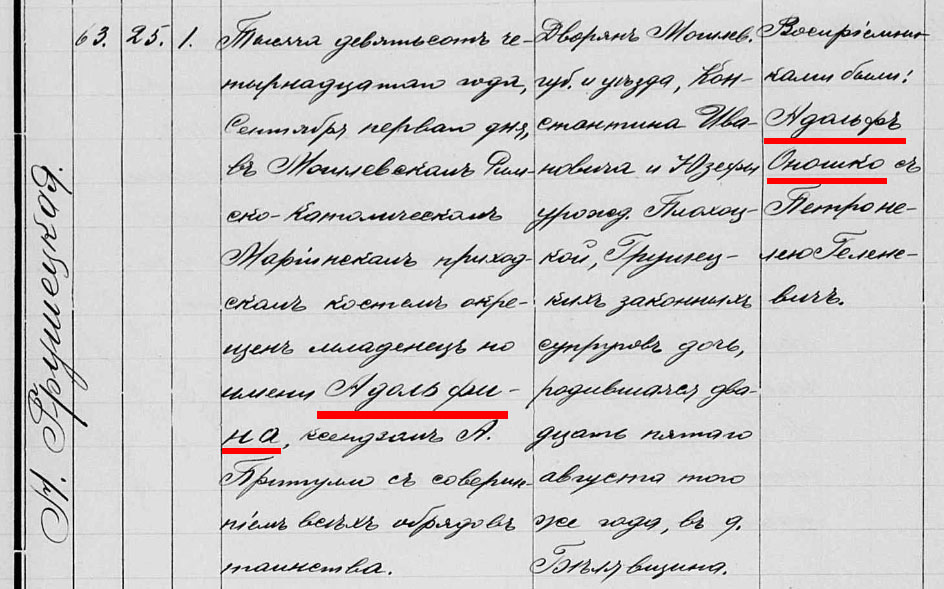 А. Грушецкая.
63. 25. 1.
Тысяча девятьсотъ че-
тырнадцатаго года,
Сентября перваго дня,
въ Могилевскомъ Рим-
ско-Католическомъ
Маріинскомъ приход-
скомъ костелѣ окре-
щенъ младенецъ по
имени Адольфи-
на, ксендзомъ А.
съ соверше-
ніемъ всѣхъ обрядовъ
таинства.
Дворянъ Могилев.
губ. и уѣзда, Кон-
стантина Ива-
новича и Юзефы
урожд. Плохоц-
кой, Грушец-
кихъ законныхъ
супруговъ дочь,
родившаяся два-
дцать пятаго
августа того
же года, въ д.
Бѣлявщина.
Воспріемни-
ками были:
Адольфъ
Оношко съ
Петроне-
лею Гелене-
вичъ.